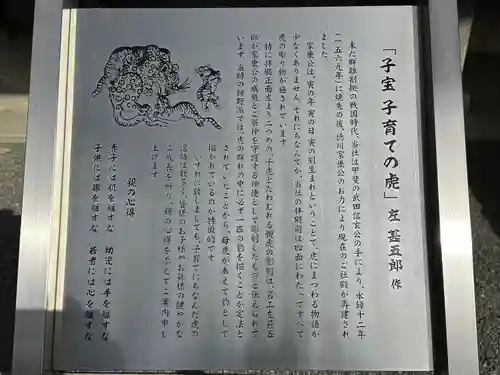 「子宝 子育ての虎」 左 甚五郎 作
未だ群雄割拠の戦国時代、当社は甲斐の武田信玄公の手により、永禄十二年
(一五六九年)に焼失の後、徳川家康公のお力により現在のご社殿が再建され
ました。
家康公は、寅の年 寅の日 寅の刻生まれということで、虎にまつわる物語が
少なくありません。それにちなんでか、当社の拝殿前は四面にわたってすべて
虎の彫り物が施されています
特に拝殿正面左より二つめの、子虎とたわむれる親虎の彫刻は、名工左甚五
郎が家康公の威厳とご祭神を守護する神使として彫刻したものと伝えられて
います。当時の狩野派では、虎の群れの中に必ず一匹の豹を描くことが定法と
されていたことから、母虎があえて豹として
描かれているのが特徴的です
いずれに致しましても、子育てにちなんだ虎の
逸話は数多く、皆様のお子様やお孫様の健やかな
ご成長を祈り、親の心得を添えてご案内申し
上げます
親の心得
赤子には肌を離すな 幼児には手を離すな
子供には眼を離すな 若者には心を離すな